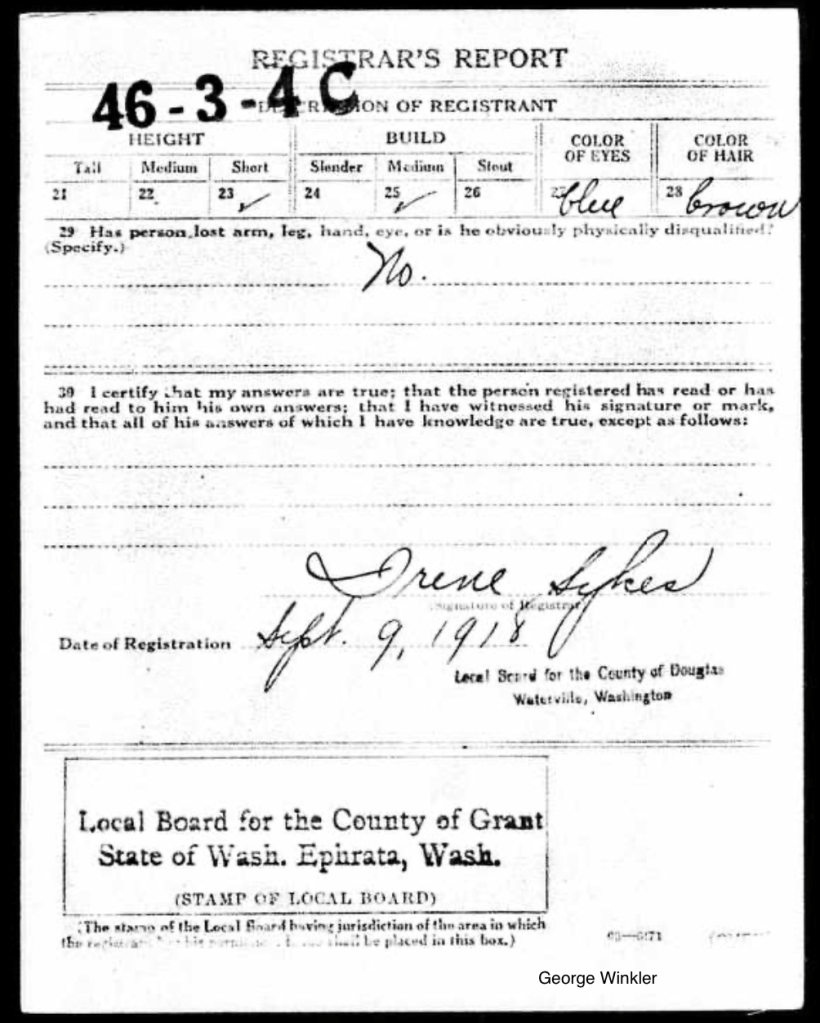 REGISTRAR'S REPORT
46-3-4 C
DESCRIPTION OF REGISTRANT
HEIGHT BUILD COLOR OF EYES COLOR OF HAIR
Tall Medium Short Slender Medium Stout
21 22 23 ✓ 24 25 ✓ 26 27 blue 28 brown
29 Has person lost arm, leg, hand, eye, or is he obviously physically disqualified?
(Specify.)
No.
30 I certify that my answers are true; that the person registered has read or has
had read to him his own answers; that I have witnessed his signature or mark,
and that all of his answers of which I have knowledge are true, except as follows:
Irene Sykes
(Signature of Registrar)
Date of Registration Sept. 9, 1918
Local Board for the County of Douglas
Waterville, Washington
Local Board for the County of Grant
State of Wash. Ephrata, Wash.
(STAMP OF LOCAL BOARD)
(The stamp of the Local Board having jurisdiction of the area in which
the shall be placed in this box.)
George Winkler